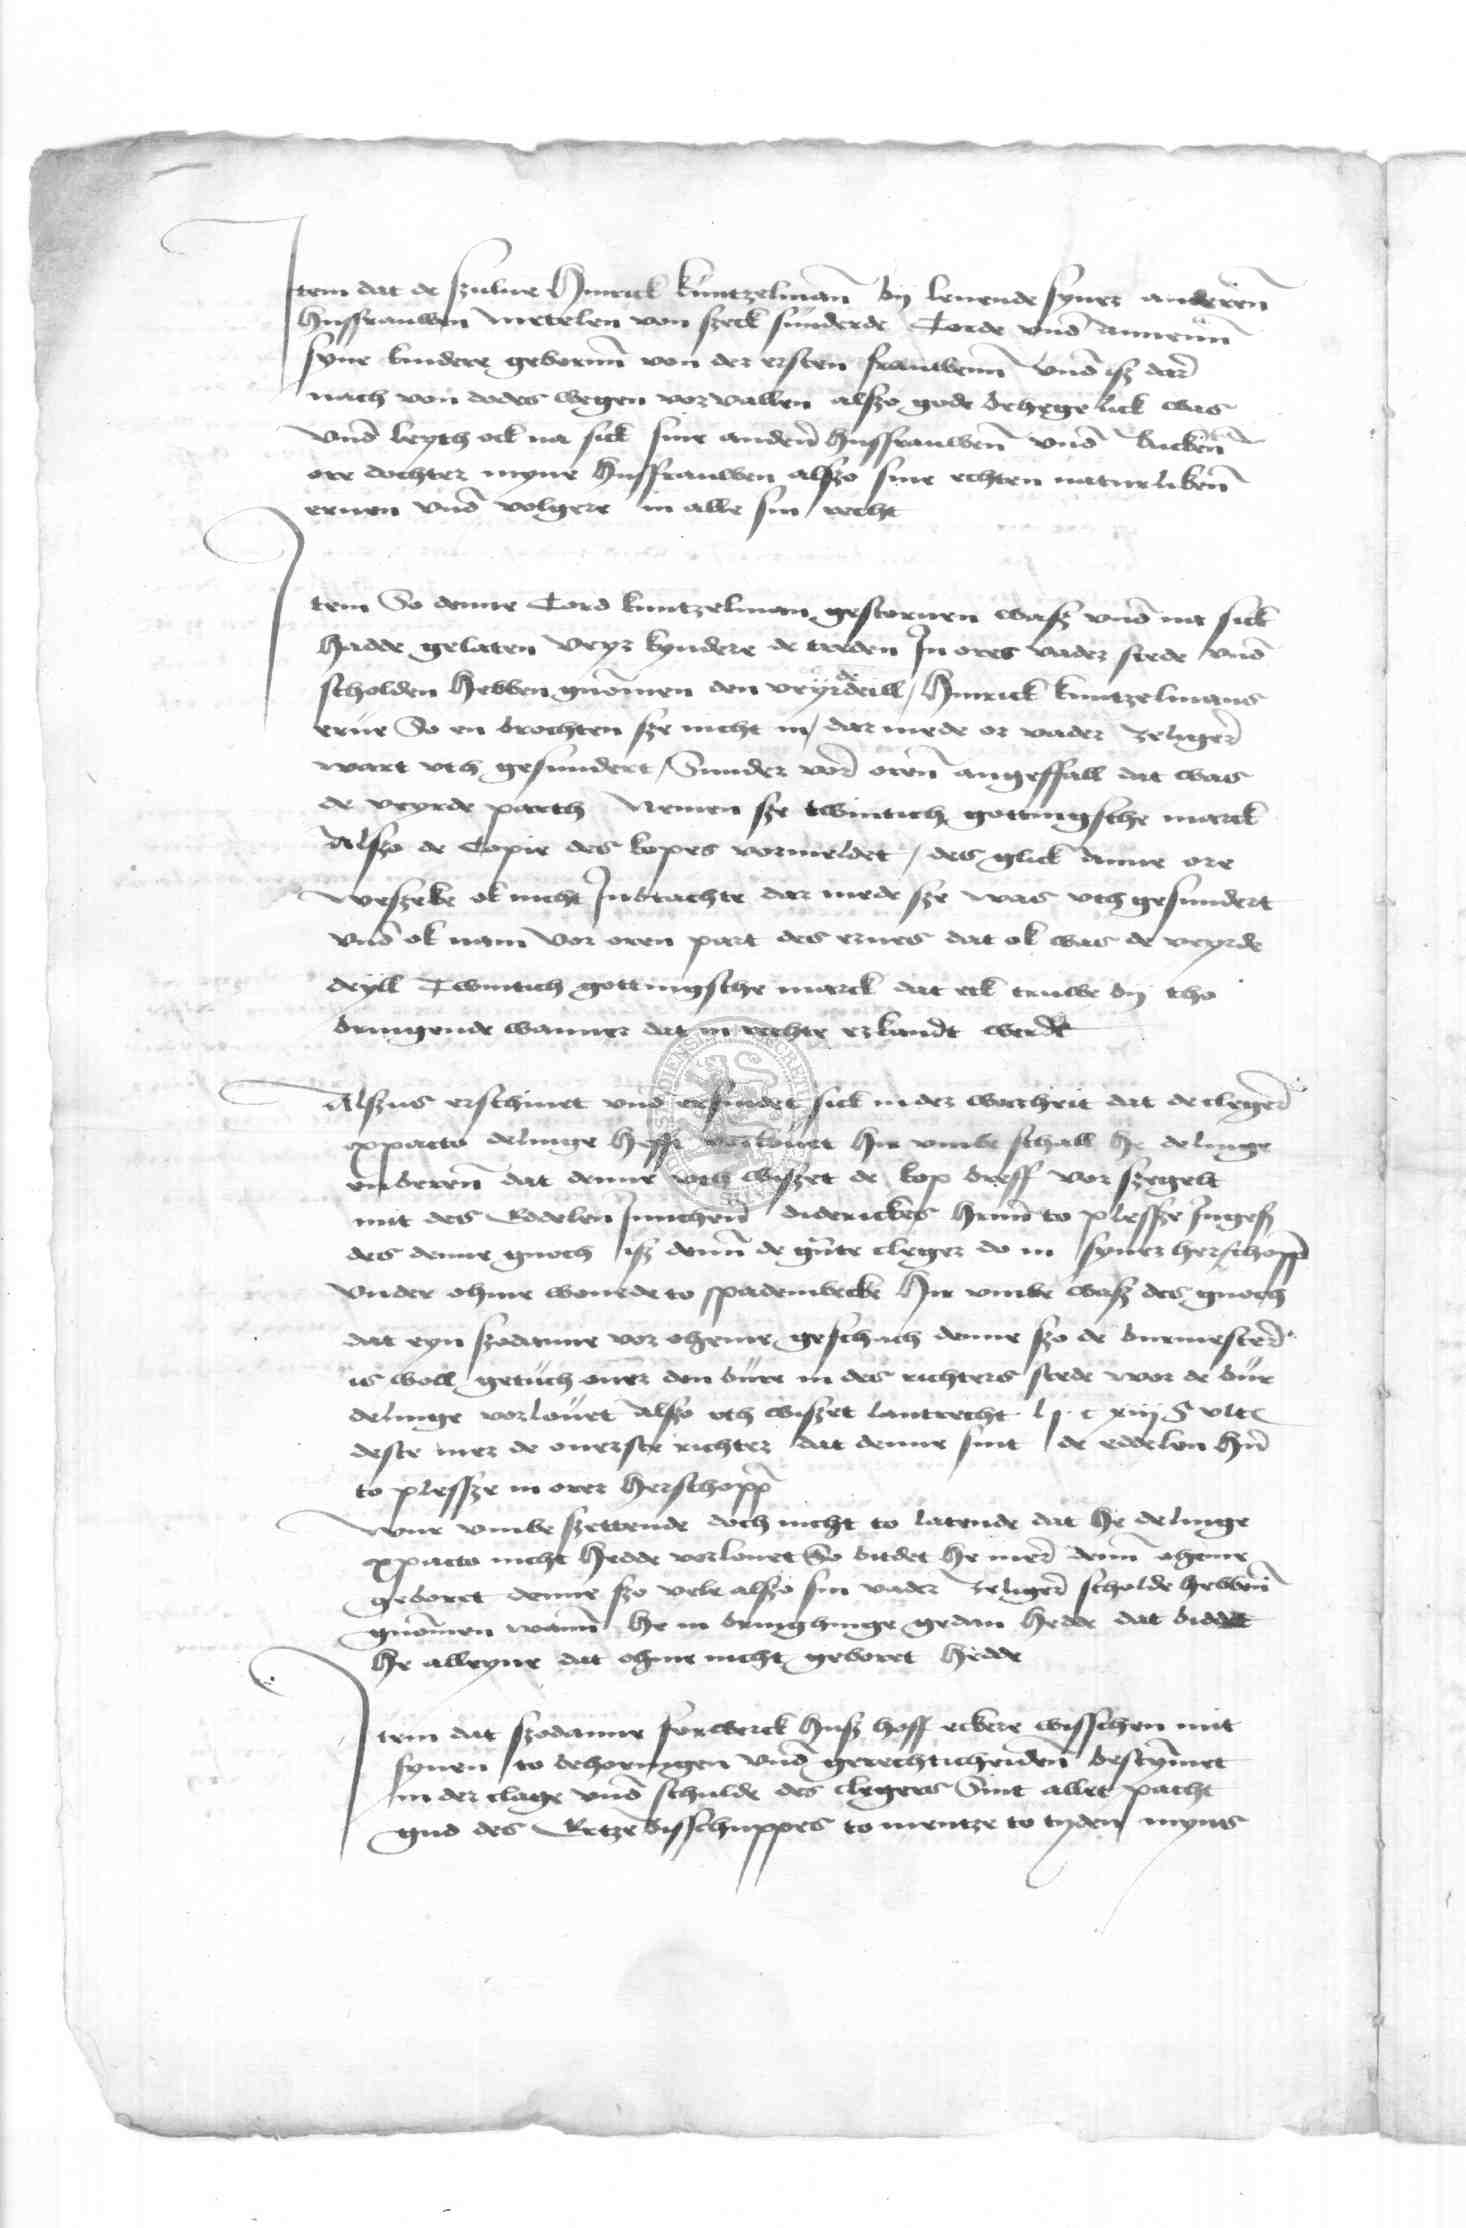 Item dat de szulue Hinrick kuntzelman by leuende syner anderen
husfrauwen metelen von szeck sunderde Corde vnd annenn
syne kindere geborenn von der ersten frauwenn vnd isz dar
nach von dodes wegen vorvallen alszo gode behegelick was
vnd leyth ock na sick sine anderen husfrauwen vnd
ore dochter myne husfrauwen alszo sine echten naturliken
eruen vnd volgere in alle sin recht
Item So denne Cord kuntzelman gestoruen wasz vnd na sick
hadde gelaten veyr kyndere de treden In ores vader stede vnd
scholden hebben gnomen den veyrdeill / Hinrick kuntzelmans
erue So en brochten sze nicht in / dar mede or vader zeliger
wart vth gesundert / Sunder vor oren angeffall dat was
de veyrde parth Nemen sze twintich gottingsche marck
Alszo de Copie des kopes vormeldet / des glick anne ore
weszeke ok nicht Inbrachte dar mede sze was vth gesundert
vnd ok nam vor oren part des erues dat ok was de veyrde
deyll Twintich gottingsche marck dat eck truwe by tho
bringende wanner dat in rechte erkandt werdt
Alszus erschinet vnd erfindet sick in der warheit dat de cleger
expacto delinge hefft vorlouet hir vmbe schall he delinge
enberen dat denne vth wiszet de kop breff vor szegelt
mit des Eddelen Junchern Diderickes hern to plessze Ingesz
des denne gnoch isz denn de gute cleger do in syner herschopp
vnder ohme wonede to spadenbecke Hir vmbe wasz des gnoch
dat eyn szodanne vor oheme geschach denne szo de burmester
is woll getuch ouer den bure in des richters stede wor de bur
delinge vorlouet Alszo vth wiszet lantrecht
deste mer de ouerste richter dat denne sint de eddelen hern
to plessze in orer herschopp
vmbe szettende doch nicht to latende dat he delinge
expacto nicht hedde vorlouet So biddet he mer denn oheme
geboret denne szo vele alszo sin vader zeliger scholde hebben
gnomen wann he in bringhinge gedan hedde dat biddet
he alleyne dat ohme nicht geboret hedde
Item dat szodanne forwerck husz hoff eckere wisschen mit
synen to behoringen vnd gerechticheiden bestymet
in der clage vnd schulde des clegers Sint allet pacht
gud des Ertzebisschuppes to mentze to tyden myns